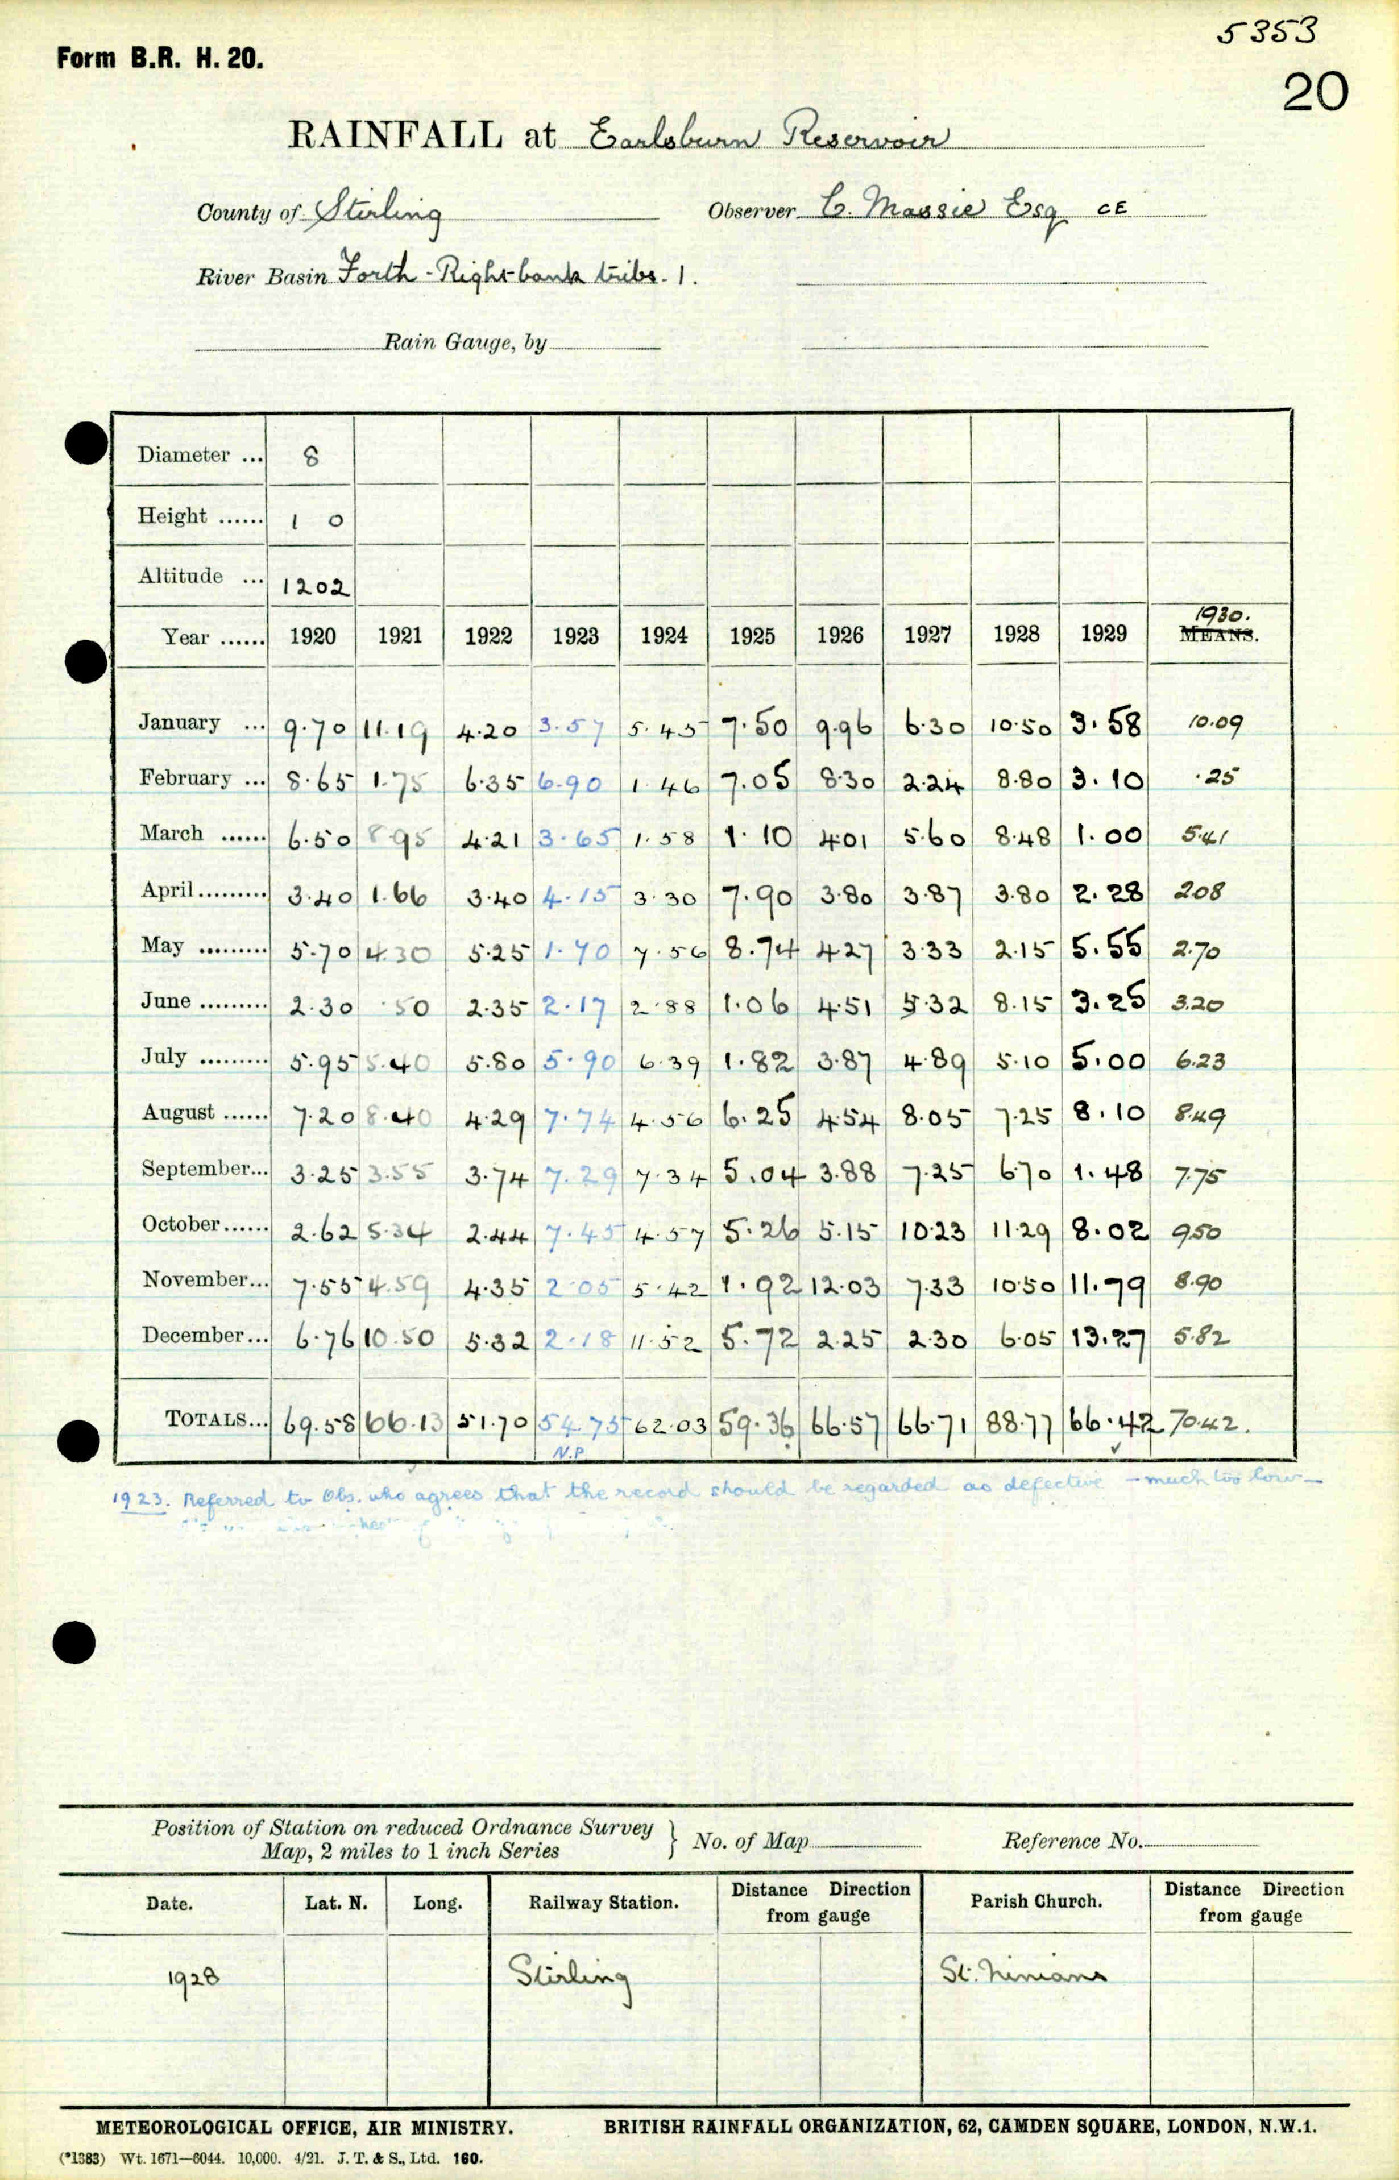 5353
Form B.R. H. 20.
20
RAINFALL at Earlsburn Reservoir
County of Stirling Observer C. Massie Esq CE
River Basin Forth - Right-bank tribs. 1.
Rain Gauge, by
Diameter ... 8
Height ...... 1 0
Altitude ... 1202
1930.
Year ...... 1920 1921 1922 1923 1924 1925 1926 1927 1928 1929 MEANS.
January ... 9.70 11.19 4.20 3.57 5.45 7.50 9.96 6.30 10.50 3.58 10.09
February ... 8.65 1.75 6.35 6.90 1.46 7.05 8.30 2.24 8.80 3.10 .25
March ...... 6.50 8.95 4.21 3.65 1.58 1.10 4.01 5.60 8.48 1.00 5.41
April ......... 3.40 1.66 3.40 4.15 3.30 7.90 3.80 3.87 3.80 2.28 2.08
May ......... 5.70 4.30 5.25 1.70 7.56 8.74 4.27 3.33 2.15 5.55 2.70
June ......... 2.30 .50 2.35 2.17 2.88 1.06 4.51 5.32 8.15 3.25 3.20
July ......... 5.95 5.40 5.80 5.90 6.39 1.82 3.87 4.89 5.10 5.00 6.23
August ...... 7.20 8.40 4.29 7.74 4.56 6.25 4.54 8.05 7.25 8.10 8.49
September... 3.25 3.55 3.74 7.29 7.34 5.04 3.88 7.25 6.70 1.48 7.75
October...... 2.62 5.34 2.44 7.45 4.57 5.26 5.15 10.23 11.29 8.02 9.50
November... 7.55 4.59 4.35 2.05 5.42 1.92 12.03 7.33 10.50 11.79 8.90
December... 6.76 10.50 5.32 2.18 11.52 5.72 2.25 2.30 6.05 13.27 5.82
TOTALS... 69.58 66.13 51.70 54.75 62.03 59.36 66.57 66.71 88.77 66.42 70.42.
N.P.
1923. Referred to Obs. who agrees that the record should be regarded as defective - much too low -
Position of Station on reduced Ordnance Survey
Map, 2 miles to 1 inch Series } No. of Map Reference No.
Date. Lat. N. Long. Railway Station. Distance from gauge Direction Parish Church. Distance from gauge Direction
1928 Stirling St. Ninians
METEOROLOGICAL OFFICE, AIR MINISTRY. BRITISH RAINFALL ORGANIZATION, 62, CAMDEN SQUARE, LONDON, N.W.1.
(*1383) Wt. 1671—6044. 10,000. 4/21. J. T. & S., Ltd. 160.